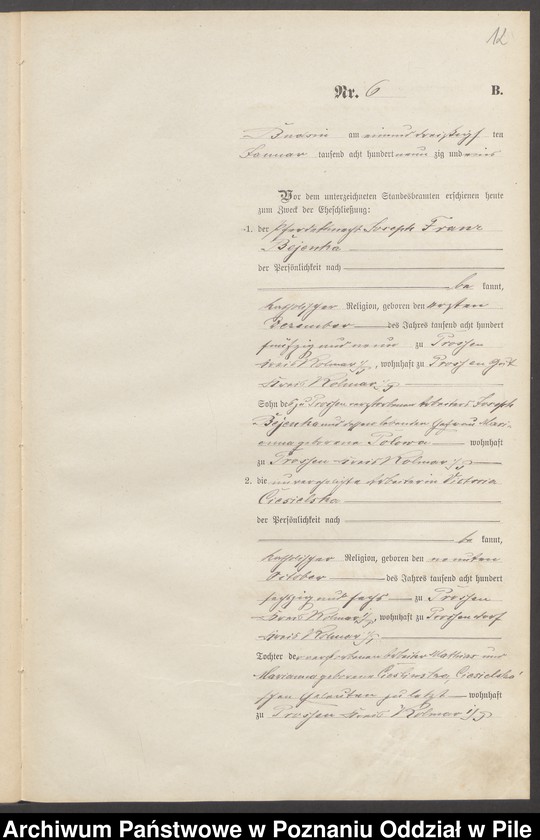 12
Nr. 6 B.
Budsin am einunddreißigsten
Januar tausend acht hundert neun zig und eins
Vor dem unterzeichneten Standesbeamten erschienen heute
zum Zweck der Eheschließung:
1. der Pferdeknecht Joseph Franz
Bejenka
der Persönlichkeit nach
be kannt,
katholischer Religion, geboren den ersten
Dezember des Jahres tausend acht hundert
fünfzig und neun zu
Kreis Kolmar i/P, wohnhaft zu Gut
Kreis Kolmar i/P
Sohn des zu verstorbenen Arbeiters Joseph
Bejenka und dessen lebenden Ehefrau Mari-
anna geborene wohnhaft
zu Kreis Kolmar i/P
2. die unverehelichte Arbeiterin Victoria
Ciesielska
der Persönlichkeit nach
be kannt,
katholischer Religion, geboren den neunten
October des Jahres tausend acht hundert
sechzig und sechs zu
Kreis Kolmar i/P, wohnhaft zu dorf
Kreis Kolmar i/P
Tochter der verstorbenen Arbeiter Mathias und
Marianna geborene Ciesielska'
schen Eheleuten zuletzt wohnhaft
zu Kreis Kolmar i/P
Archiwum Państwowe w Poznaniu Oddział w Pile